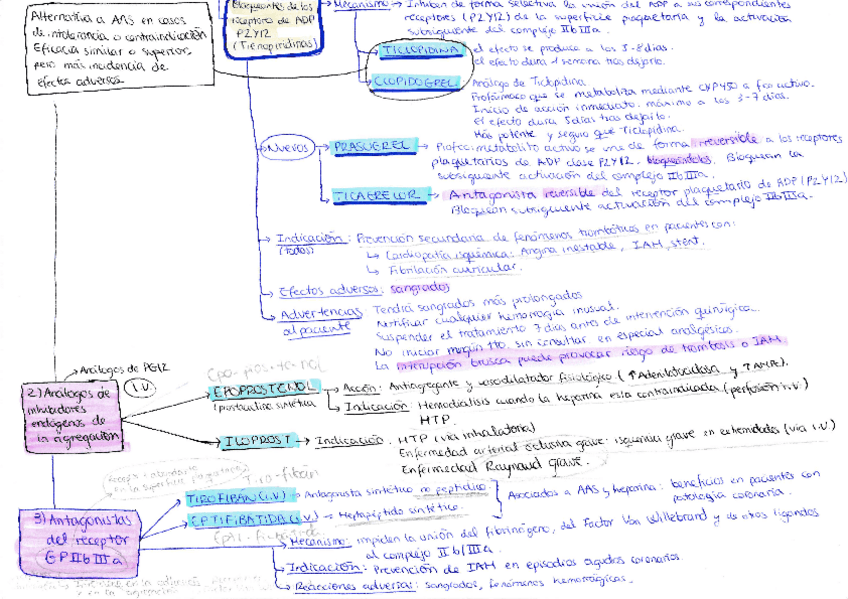 Alternativa a AAS en casos
de intolerancia o contraindicación
Eficacia similar o superior,
pero más incidencia de
efectos adversos.
Bloqueantes de los
receptores de ADP
P2Y12
(Tienopiridinas)
Mecanismo → Inhiben de forma selectiva la unión del ADP a sus correspondientes
receptores (P2Y12) de la superficie plaquetaria y la activación
subsiguiente del complejo IIbIIIa.
TICLOPIDINA
el efecto se produce a los 5-8 días.
el efecto dura 1 semana tras dejarlo.
CLOPIDOGREL
Análogo de Ticlopidina.
Profármaco que se metaboliza mediante CYP450 a fco activo.
Inicio de acción inmediato. máximo a los 3-7 días.
El efecto dura 5 días tras dejarlo.
Más potente y seguro que Ticlopidina.
Nuevos
PRASUGREL → Profco: metabolito activo se une de forma irreversible a los receptores
plaquetarios de ADP clase P2Y12. bloqueándolos. Bloquean la
subsiguiente activación del complejo IIbIIIa.
TICAGRELOR → Antagonista reversible del receptor plaquetario de ADP (P2Y12)
Bloquean subsiguiente activación del complejo IIbIIIa.
Indicación: Prevención secundaria de fenómenos trombóticos en pacientes con:
(todos)
↳ Cardiopatía isquémica: Angina inestable, IAM, stent.
↳ Fibrilación auricular.
Efectos adversos: sangrados
Advertencias
al paciente
Tendrá sangrados más prolongados
Notificar cualquier hemorragia inusual.
Suspender el tratamiento 7 días antes de intervención quirúrgica.
No iniciar ningún tto. sin consultar. en especial analgésicos.
La interrupción brusca puede provocar riesgo de trombosis o IAM.
Análogos de PGI2
I.V.
2) Análogos de
inhibidores
endógenos de
la agregación
Epo-pros-te-nol
EPOPROSTENOL
(prostaciclina sintética)
Acción: Antiagregante y vasodilatador fisiológico (↑Adenilatociclasa y ↑AMPc).
Indicación: Hemodiálisis cuando la heparina esta contraindicada (perfusión i.v.)
HTP.
ILOPROST → Indicación: HTP (vía inhalatoria)
Enfermedad arterial oclusiva grave: isquemia grave en extremidades (vía i.v.)
Enfermedad Raynaud grave.
Tiro-fibán
TIROFIBAN (i.V.) → Antagonista sintético no peptídico.
EPTIFIBATIDA (i.v.) → Heptapéptido sintético.
Asociados a AAS y heparina: beneficios en pacientes con
patología coronaria.
3) Antagonistas
del receptor
GPIIbIIIa
Mecanismo: impiden la unión del fibrinógeno, del Factor Von Willebrand y de otros ligandos
al complejo IIb/IIIa.
Indicación: Prevención de IAM en episodios agudos coronarios.
Reacciones adversas: sangrados, fenómenos hemorrágicos.